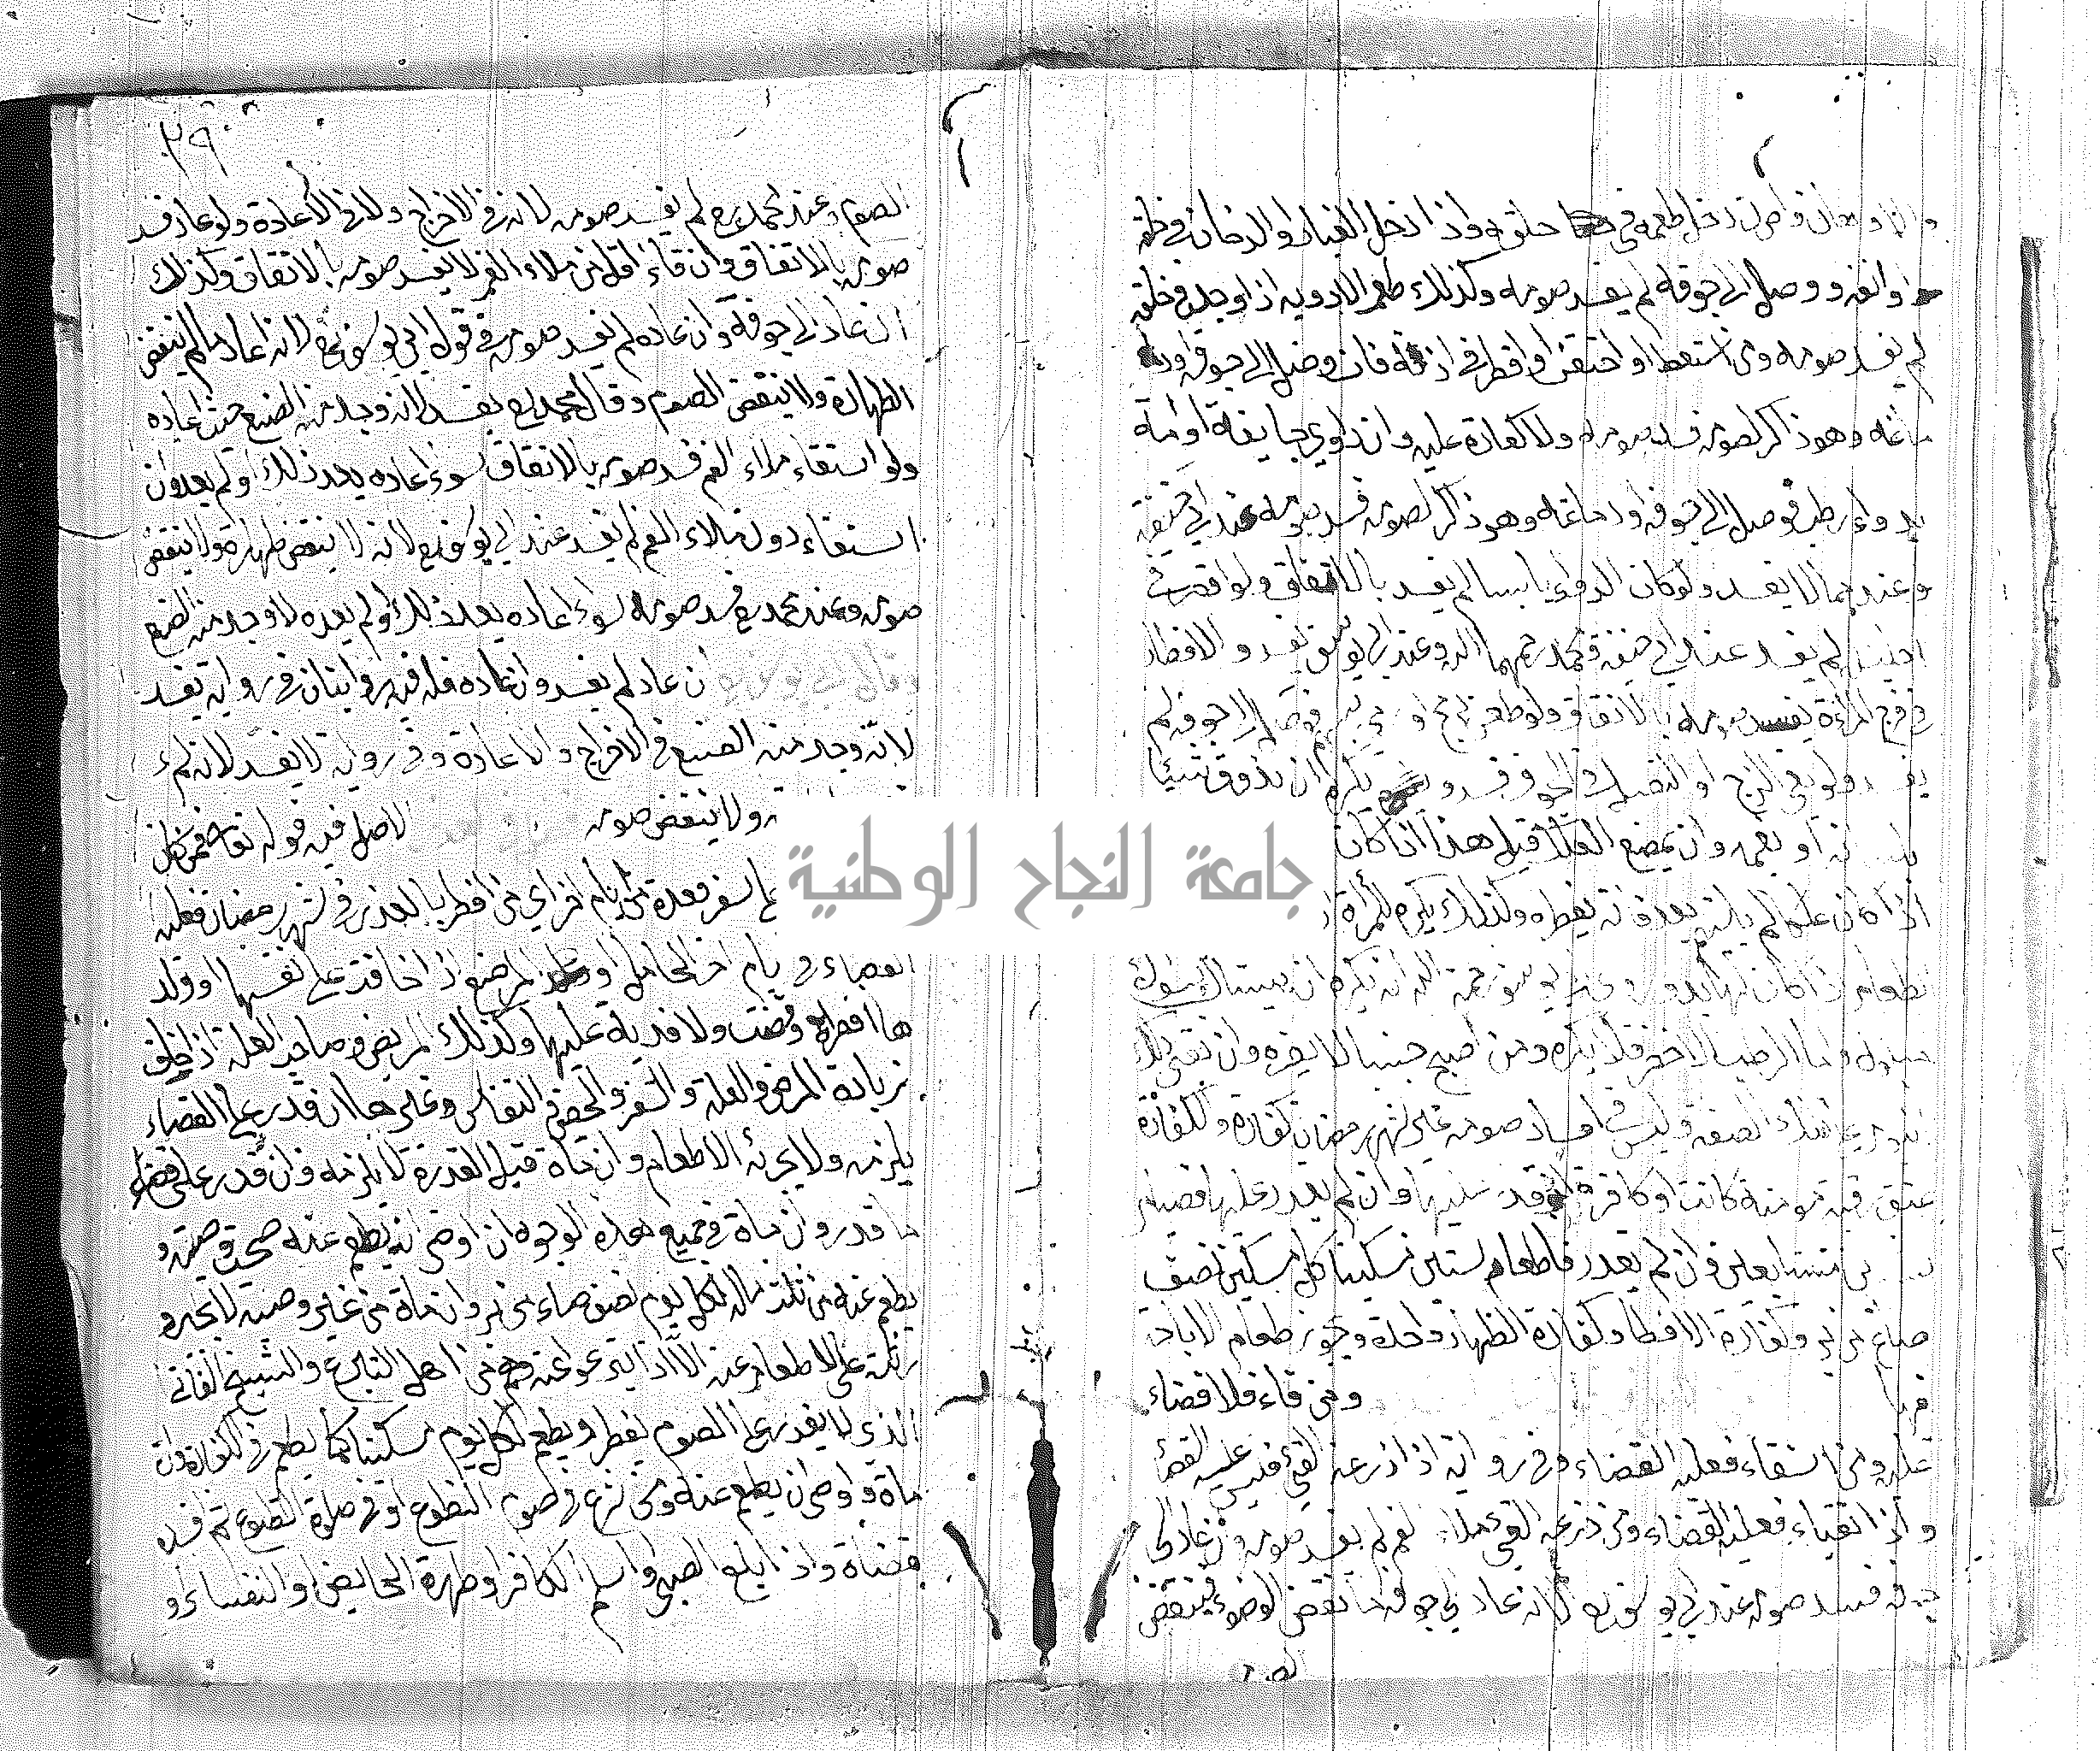 حلقه واذا دخل الغبار والدخان في حلقه
وانفه ووصل الى جوفه لم يفسد صومه وكذلك طعم الادويه اذا وجد في حلقه
لم يفسد صومه ومن استعط او احتقن او اقطر في اذنه فان وصل الى جوفه او
دماغه وهو ذاكر لصومه فسد صومه ولا كفارة عليه وان داوي جايفة او امة
بدواء رطب فوصل الى جوفه او دماغه وهو ذاكر لصومه فسد صومه عند ابي حنيفه
وعندهما لا يفسد ولو كان الدواء يابسا لم يفسد بالاتفاق ولو اقطر في
احليله لم يفسد عند ابي حنيفة ومحمد رحمهما الله وعند ابي يوسف يفسد والاقطار
في فرج المراءة يفسد صومه بالاتفاق ولو طعن برمح او فوصل الى جوفه لم
يفسد ولو بقي الزج او النصل في الجوف فسد ويكره ان يذوق شيئا
او بفمه وان يمضغ العلك قيل هذا اذا كان
اذا كان علكا لم يلتيم بعد فانه يفطره وكذلك يكره للمراة
الطعام اذا كان لها بد وعن ابي يوسف رحمه الله انه يكره ان يستاك بسواك
مبلول واما الرطب الاخضر فلا يكره ومن اصبح جنبا لا يضره وان بقي كذلك
الصفة وليس في افساد صوم غير شهر رمضان كفارة والكفارة
عتق رقبة مومنة كانت او كافرة ان قدر عليها وان لم يقدر عليها فصيام
شهرين متتابعين وان لم يقدر فاطعام ستين مسكينا كل مسكين نصف
صاع من بر وكفارة الافطار وكفارة الظهار واحدة ويجوز طعام الاباحة
فيها ومن قاء فلا قضاء
عليه ومن استقاء فعليه القضاء وفي رواية اذا ذرعه القيء فليس عليه القضاء
واذا تقياء فعليه القضاء ومن ذرعه القيء ملاء الفم لم يفسد صومه وان عاد الى
جوفه فسد صومه عند ابي يوسف رح لانه عاد الى جوفه ما نقض الوضوء فينقض
الصوم
٣٩
الصوم وعند محمد رح لم يفسد صومه لانه في الاخراج ولا في الاعادة ولو عاد فسد
صومه بالاتفاق وان قاء اقل من ملاء الفم لا يفسد صومه بالاتفاق وكذلك
ان عاد الى جوفه وان عاده لم يفسد صومه في قول ابي يوسف رح لانه اعاد ما لم ينقض
الطهارة ولا ينقض الصوم وقال محمد رح يفسد لانه وجد منه الصنع حيث اعاده
ولو استقاء ملاء الفم فسد صومه بالاتفاق سواء اعاده بعد ذلك او لم يعد وان
استقاء دون ملاء الفم لم يفسد عند ابي يوسف رح لانه لا ينقض طهارته ولا ينقض
صومه وعند محمد رح فسد صومه سواء اعاده بعد ذلك او لم يعده لا وجد منه الصنع
وقال ابي يوسف رح ان عاد لم يفسد وان عاده فله فيه روايتان في رواية يفسد
لانه وجد منه الصنع في الاخراج والاعادة وفي رواية لا يفسد لانه لم
ولا ينقض صومه الاصل فيه قوله تعالى فمن كان
سفر فعدة من ايام اخر اي من افطر بالعذر في شهر رمضان فعليه
القضاء في ايام اخر الحامل او المرضع اذا خافت على نفسها او ولد
ها افطرت وقضت ولا فدية عليها وكذلك المريض وصاحب العلة اذا خاف
زيادة المرض والعلة والسفر والحيض والنفاس وغيرها ان قدر على القضاء
يلزمه ولا يجزئه الاطعام وان ماة قبل القدرة لا يلزمه وان قدر على قضاء
ما قدر وان ماة في جميع هذه الوجوه ان اوصى ان يطعم عنه صحت وصيته و
يطعم عنه من ثلث ماله لكل يوم نصف صاء من بر وان ماة من غير وصية لا يجبر و
رثته على الاطعام عنه الا اذا تبرعوا عنه وهم من اهل التبرع والشيخ الفاني
الذي لا يقدر على الصوم يفطر ويطعم لكل يوم مسكينا كما يطعم في الكفارة وان
ماة واوصى ان يطعم عنه ومن شرع في صوم التطوع او في صلوة التطوع ثم افسده
قضاه واذا بلغ الصبي واسلم الكافر او طهرة الحايض او النفساء او
جامعة النجاح الوطنية